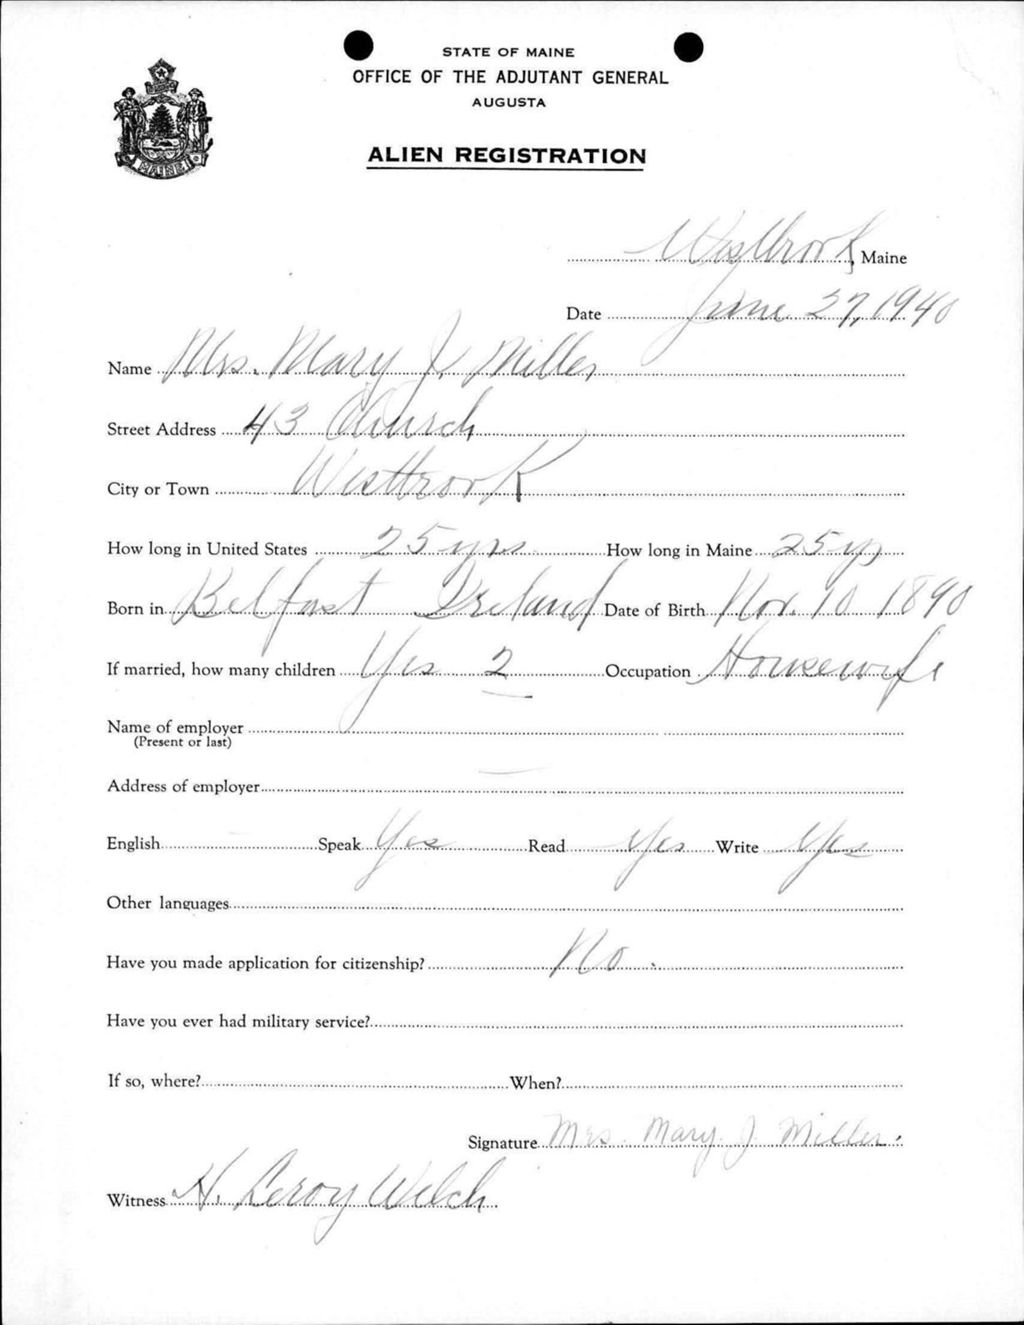 STATE OF MAINE
OFFICE OF THE ADJUTANT GENERAL
AUGUSTA
ALIEN REGISTRATION
MAINE
Westbrook, Maine
Date June 27, 1940
Name Mrs. Mary J. Miller
Street Address 43 Church
City or Town Westbrook
How long in United States 25 yrs How long in Maine 25 yrs
Born in Belfast Ireland Date of Birth Nov. 10 1890
If married, how many children Yes 2 Occupation Housewife
Name of employer
(Present or last)
Address of employer
English Speak Yes Read Yes Write Yes
Other languages
Have you made application for citizenship? No.
Have you ever had military service?
If so, where? When?
Signature Mrs. Mary J Miller.
Witness H. Leroy Welch